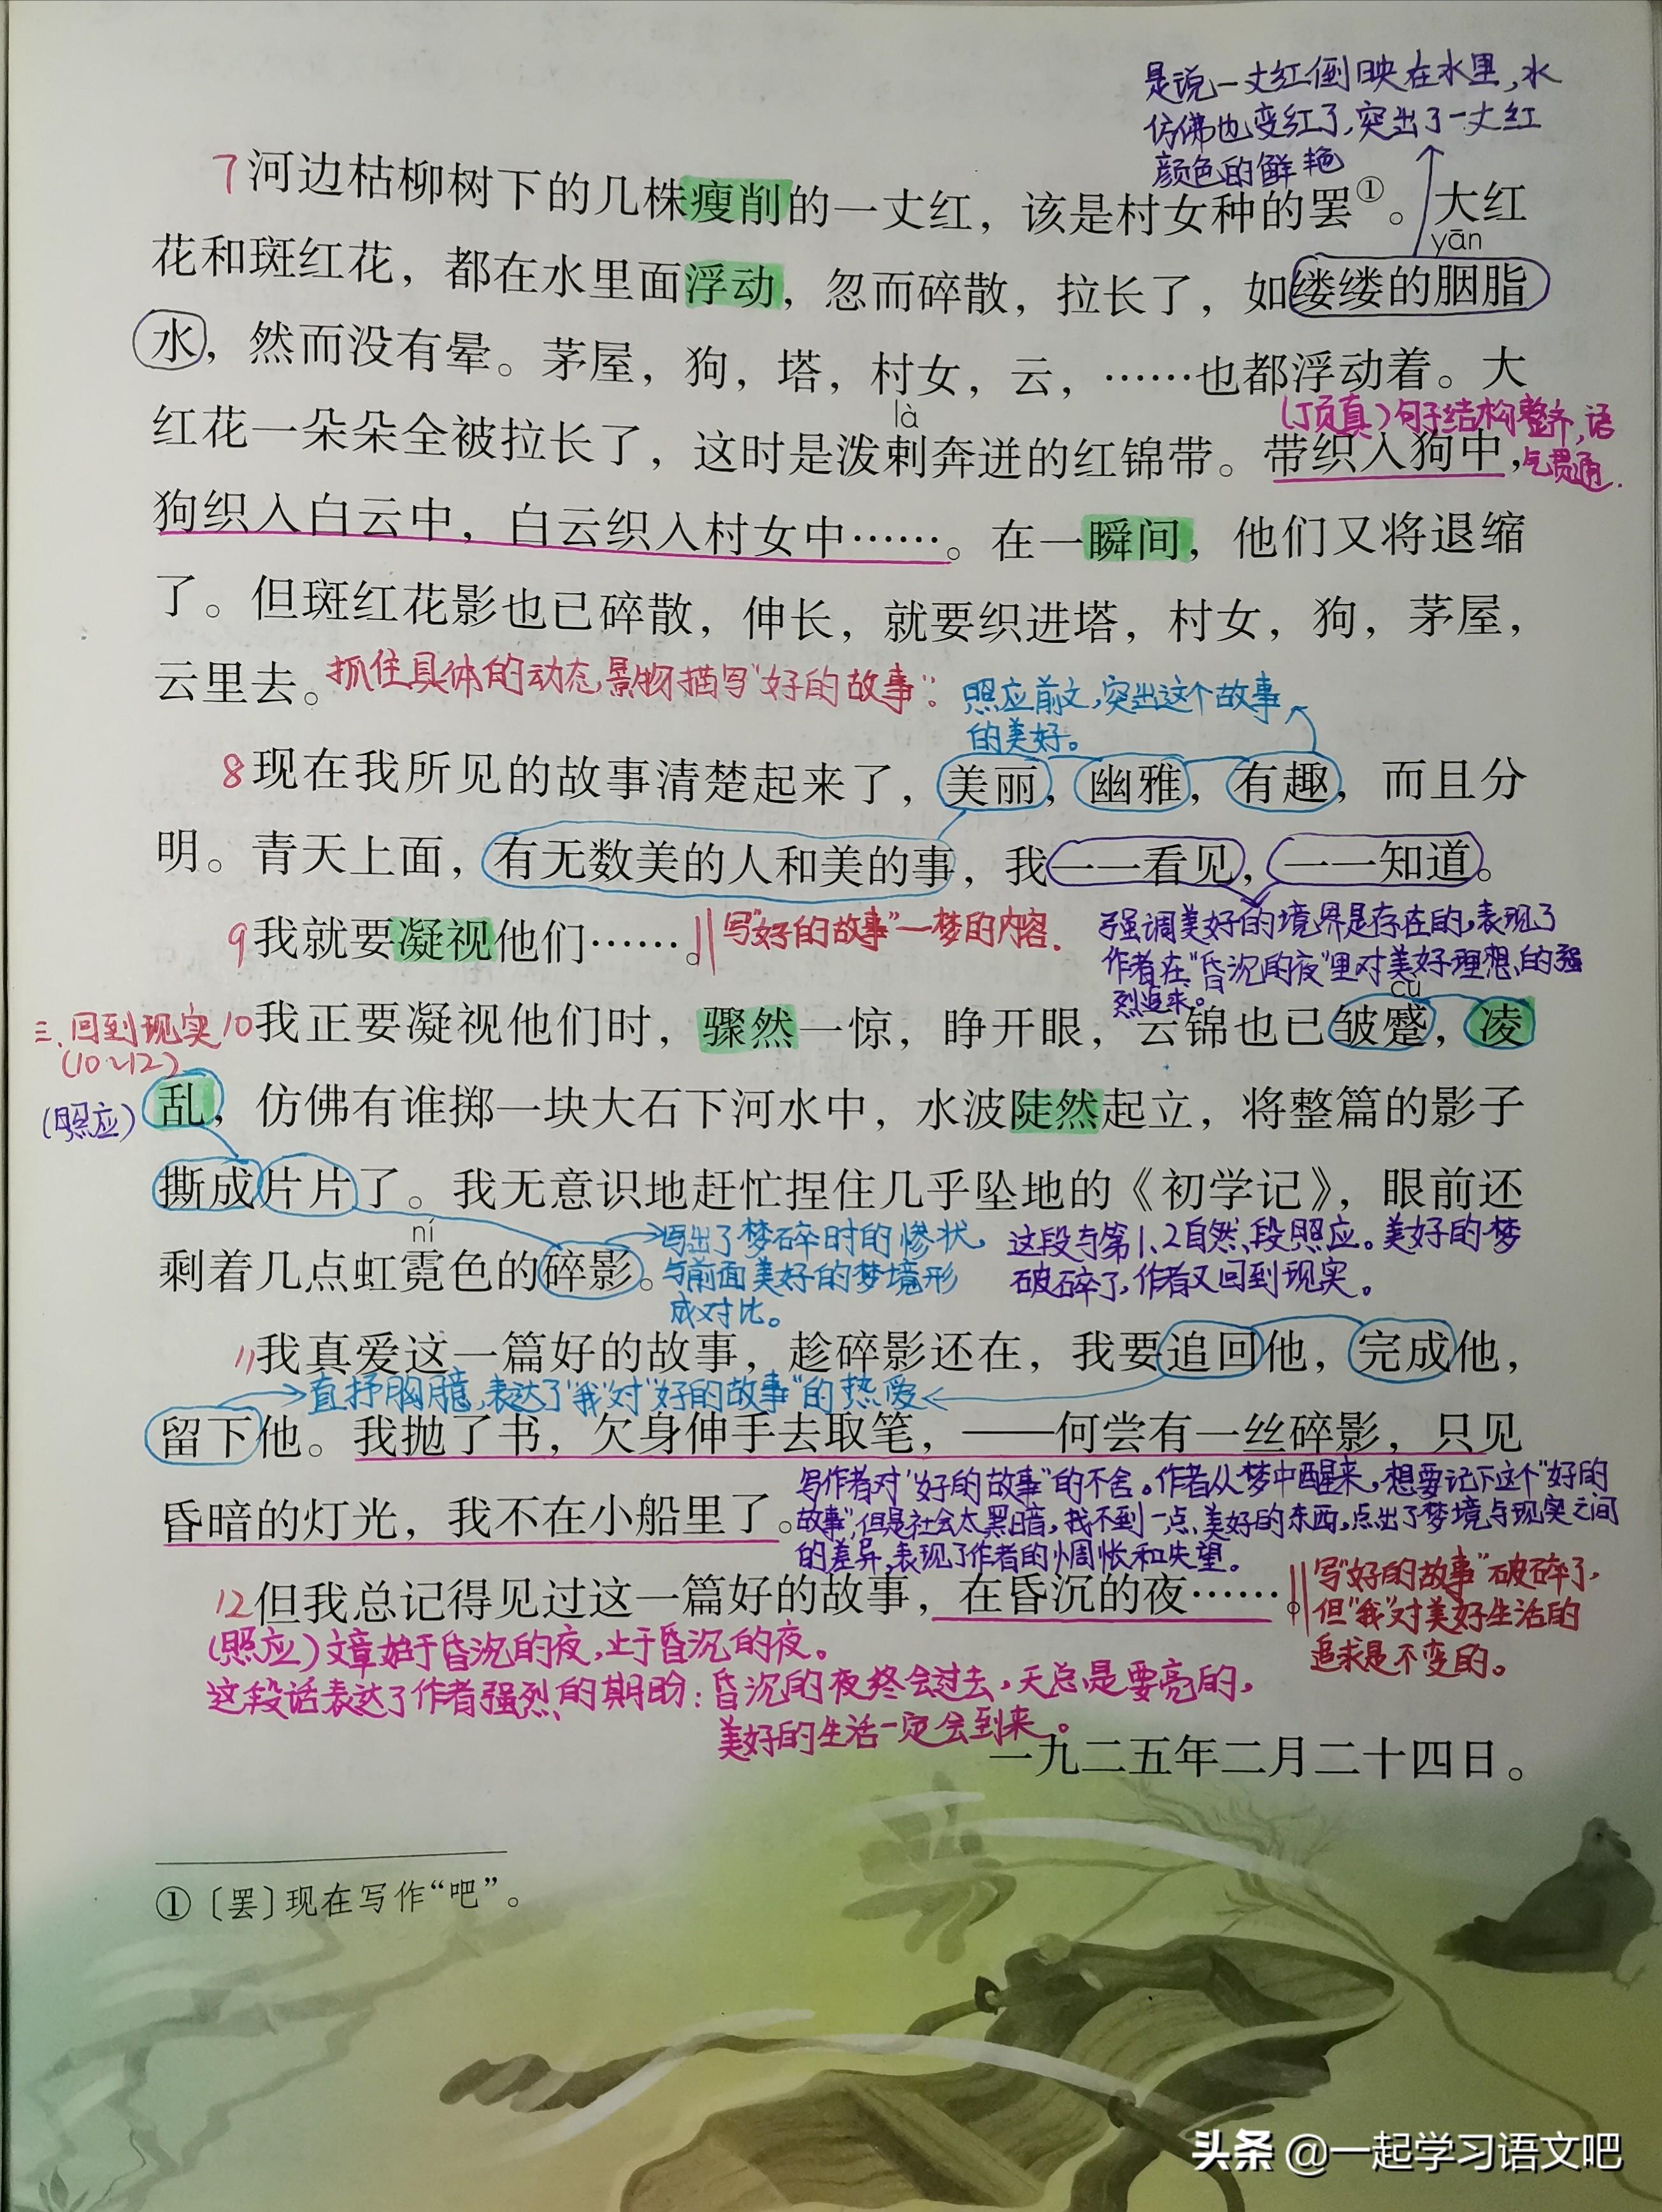 是说一丈红倒映在水里,水
仿佛也变红了,突出了一丈红
颜色的鲜艳
7河边枯柳树下的几株瘦削的一丈红，该是村女种的罢①。大红
yān
花和斑红花，都在水里面浮动，忽而碎散，拉长了，如缕缕的胭脂
水，然而没有晕。茅屋，狗，塔，村女，云，……也都浮动着。大
(顶真)句子结构整齐,语
là
红花一朵朵全被拉长了，这时是泼剌奔迸的红锦带。带织入狗中，
气贯通.
狗织入白云中，白云织入村女中……。在一瞬间，他们又将退缩
了。但斑红花影也已碎散，伸长，就要织进塔，村女，狗，茅屋，
云里去。
抓住具体的动态景物描写"好的故事"。
照应前文,突出这个故事
的美好。
8现在我所见的故事清楚起来了，美丽，幽雅，有趣，而且分
明。青天上面，有无数美的人和美的事，我一一看见，一一知道。
9我就要凝视他们……。
写"好的故事"一梦的内容.
强调美好的境界是存在的,表现了
作者在"昏沉的夜"里对美好理想的强
烈追求。
cù
三、回到现实
(10~12)
10我正要凝视他们时，骤然一惊，睁开眼，云锦也已皱蹙，凌
(照应)
乱，仿佛有谁掷一块大石下河水中，水波陡然起立，将整篇的影子
撕成片片了。我无意识地赶忙捏住几乎坠地的《初学记》，眼前还
ní
剩着几点虹霓色的碎影。
写出了梦碎时的惨状,
与前面美好的梦境形
成对比。
这段与第1、2自然段照应。美好的梦
破碎了,作者又回到现实。
11我真爱这一篇好的故事，趁碎影还在，我要追回他，完成他，
直抒胸臆,表达了"我"对"好的故事"的热爱
留下他。我抛了书，欠身伸手去取笔，——何尝有一丝碎影，只见
昏暗的灯光，我不在小船里了。
写作者对"好的故事"的不舍。作者从梦中醒来,想要记下这个"好的
故事",但是社会太黑暗,找不到一点美好的东西,点出了梦境与现实之间
的差异,表现了作者的惆怅和失望。
12但我总记得见过这一篇好的故事，在昏沉的夜……。
写"好的故事"破碎了,
但"我"对美好生活的
追求是不变的。
(照应)文章始于昏沉的夜,止于昏沉的夜。
这段话表达了作者强烈的期盼:昏沉的夜终会过去,天总是要亮的,
美好的生活一定会到来。
一九二五年二月二十四日。
①〔罢〕现在写作“吧”。
头条 @一起学习语文吧